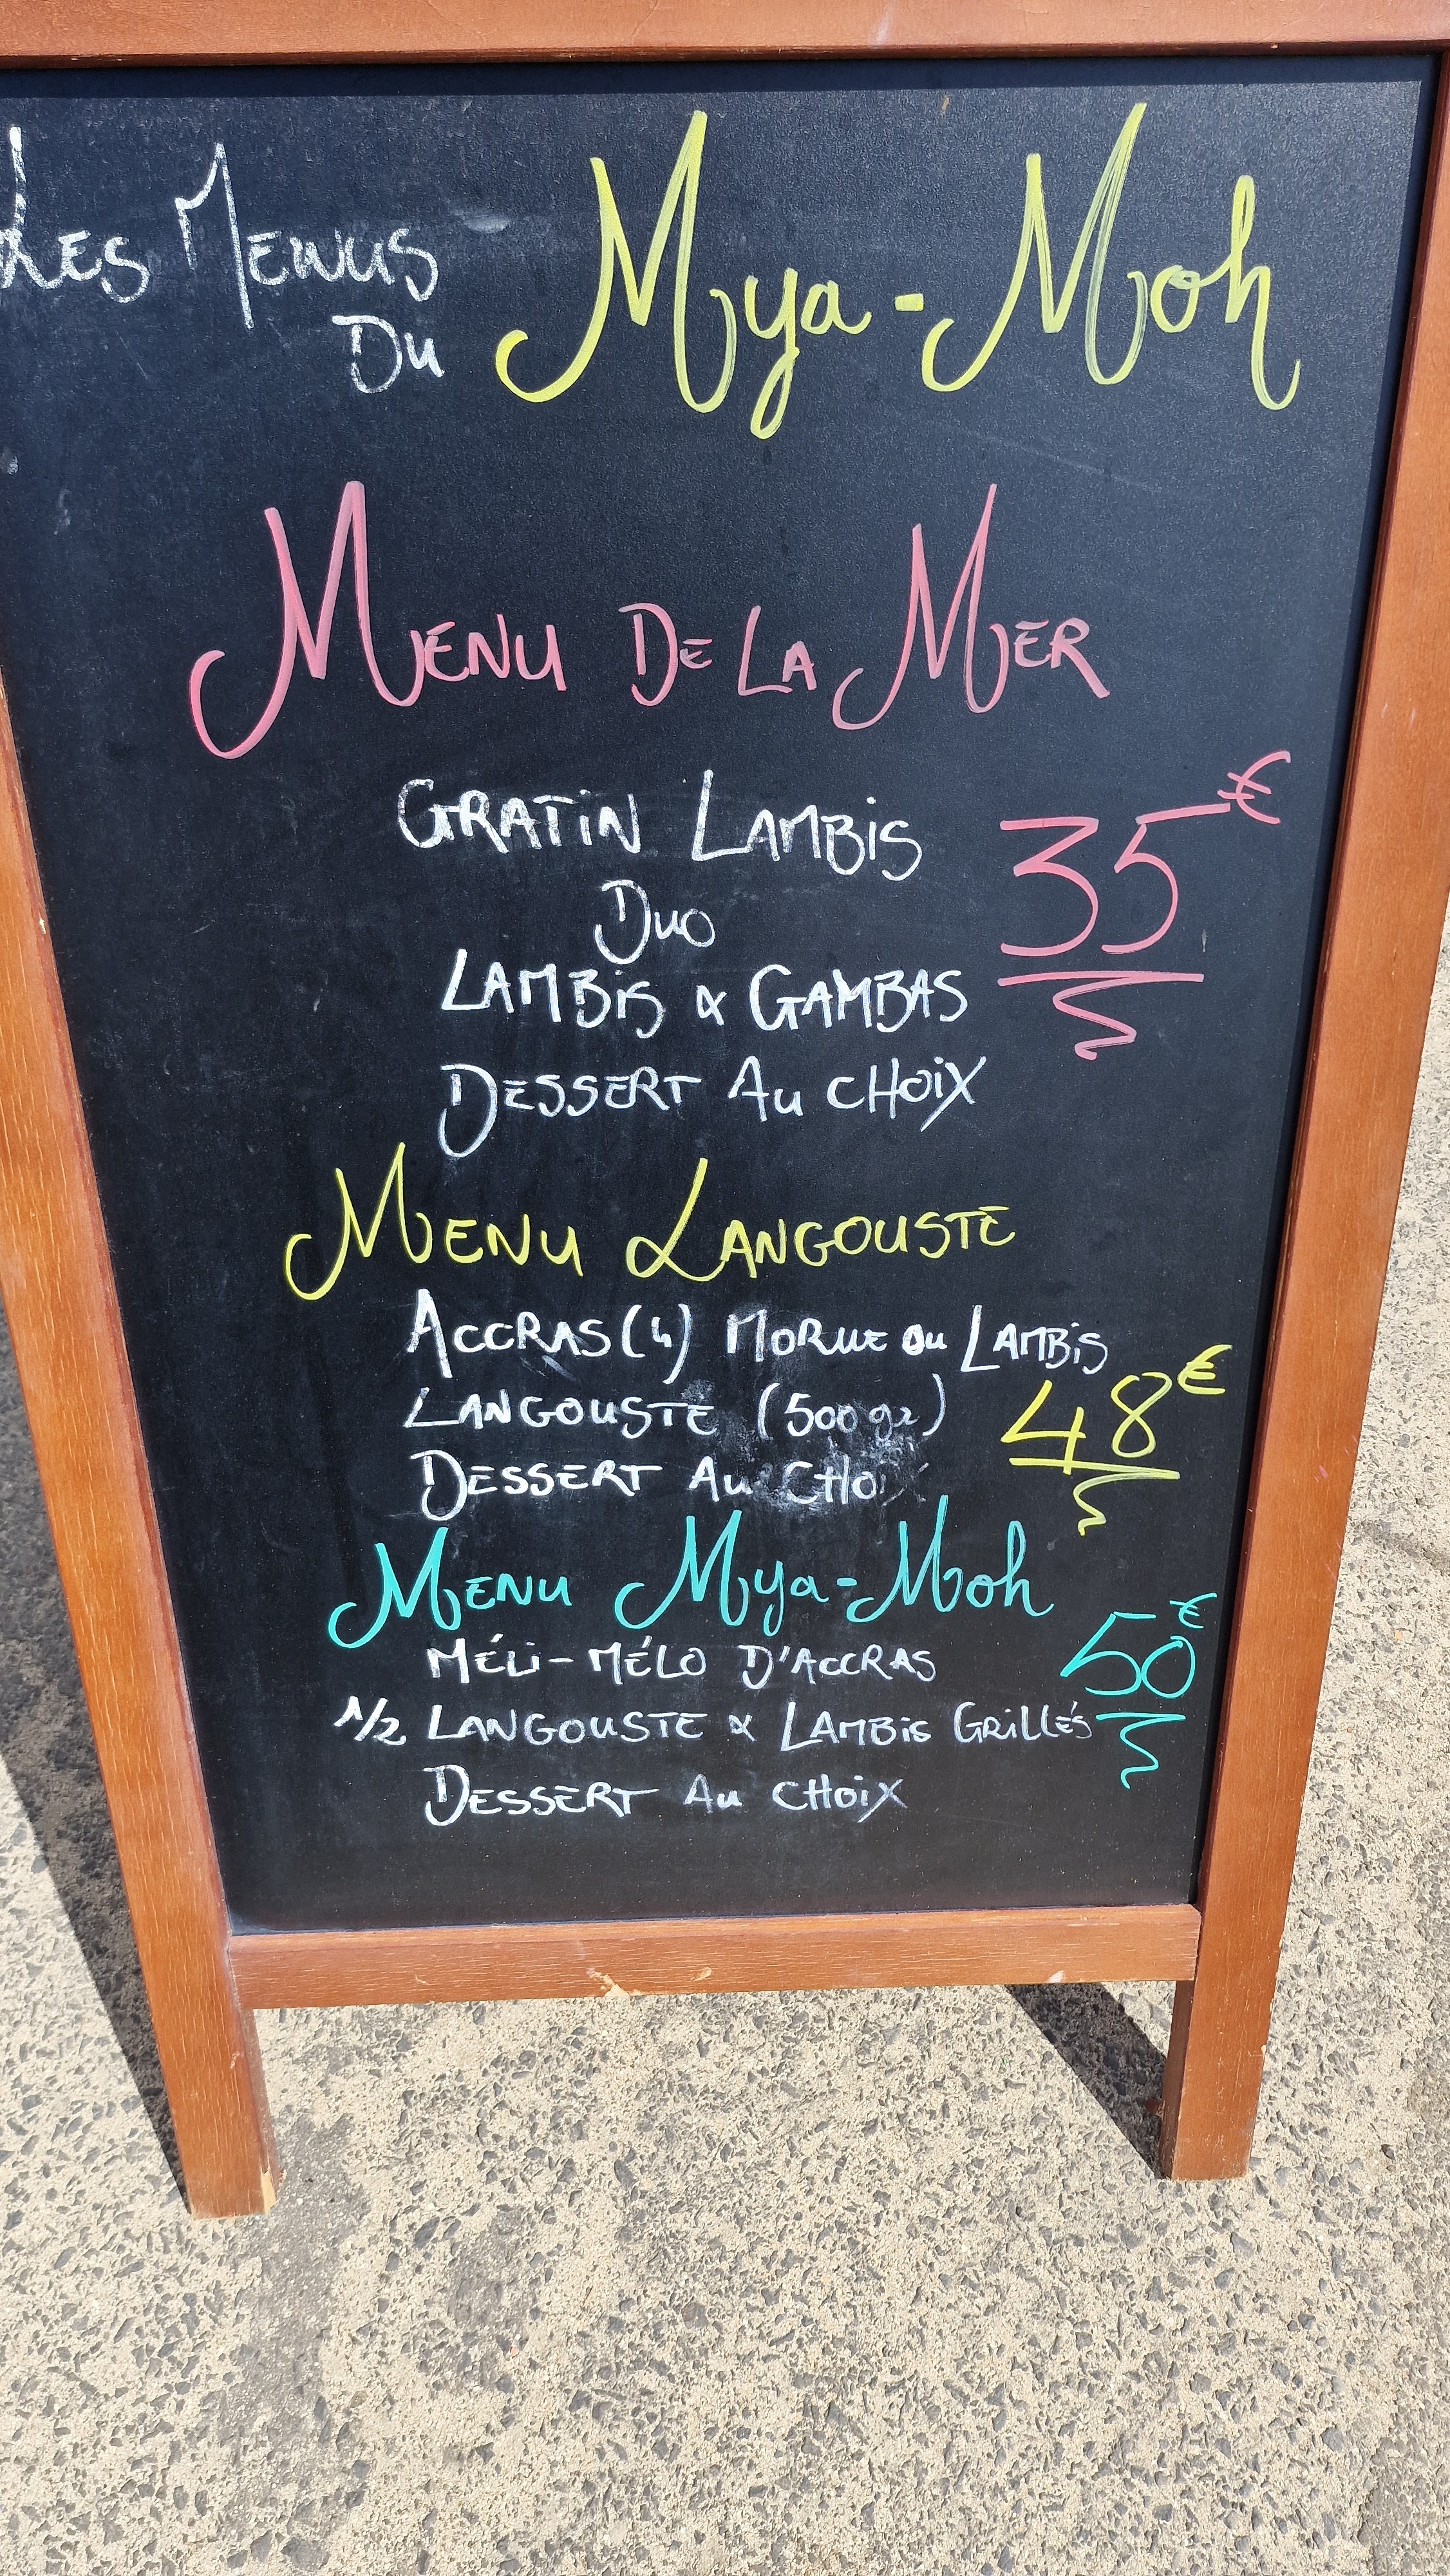 Les Menus
Du Mya-Moh
Menu De La Mer
Gratin Lambis
35€
Duo
Lambis & Gambas
Dessert Au choix
Menu Langouste
Accras (4) Morue ou Lambis
Langouste (500 gr)
48€
Dessert Au choix
Menu Mya-Moh
50€
Méli-Mélo D'Accras
1/2 Langouste & Lambis Grillés
Dessert Au choix